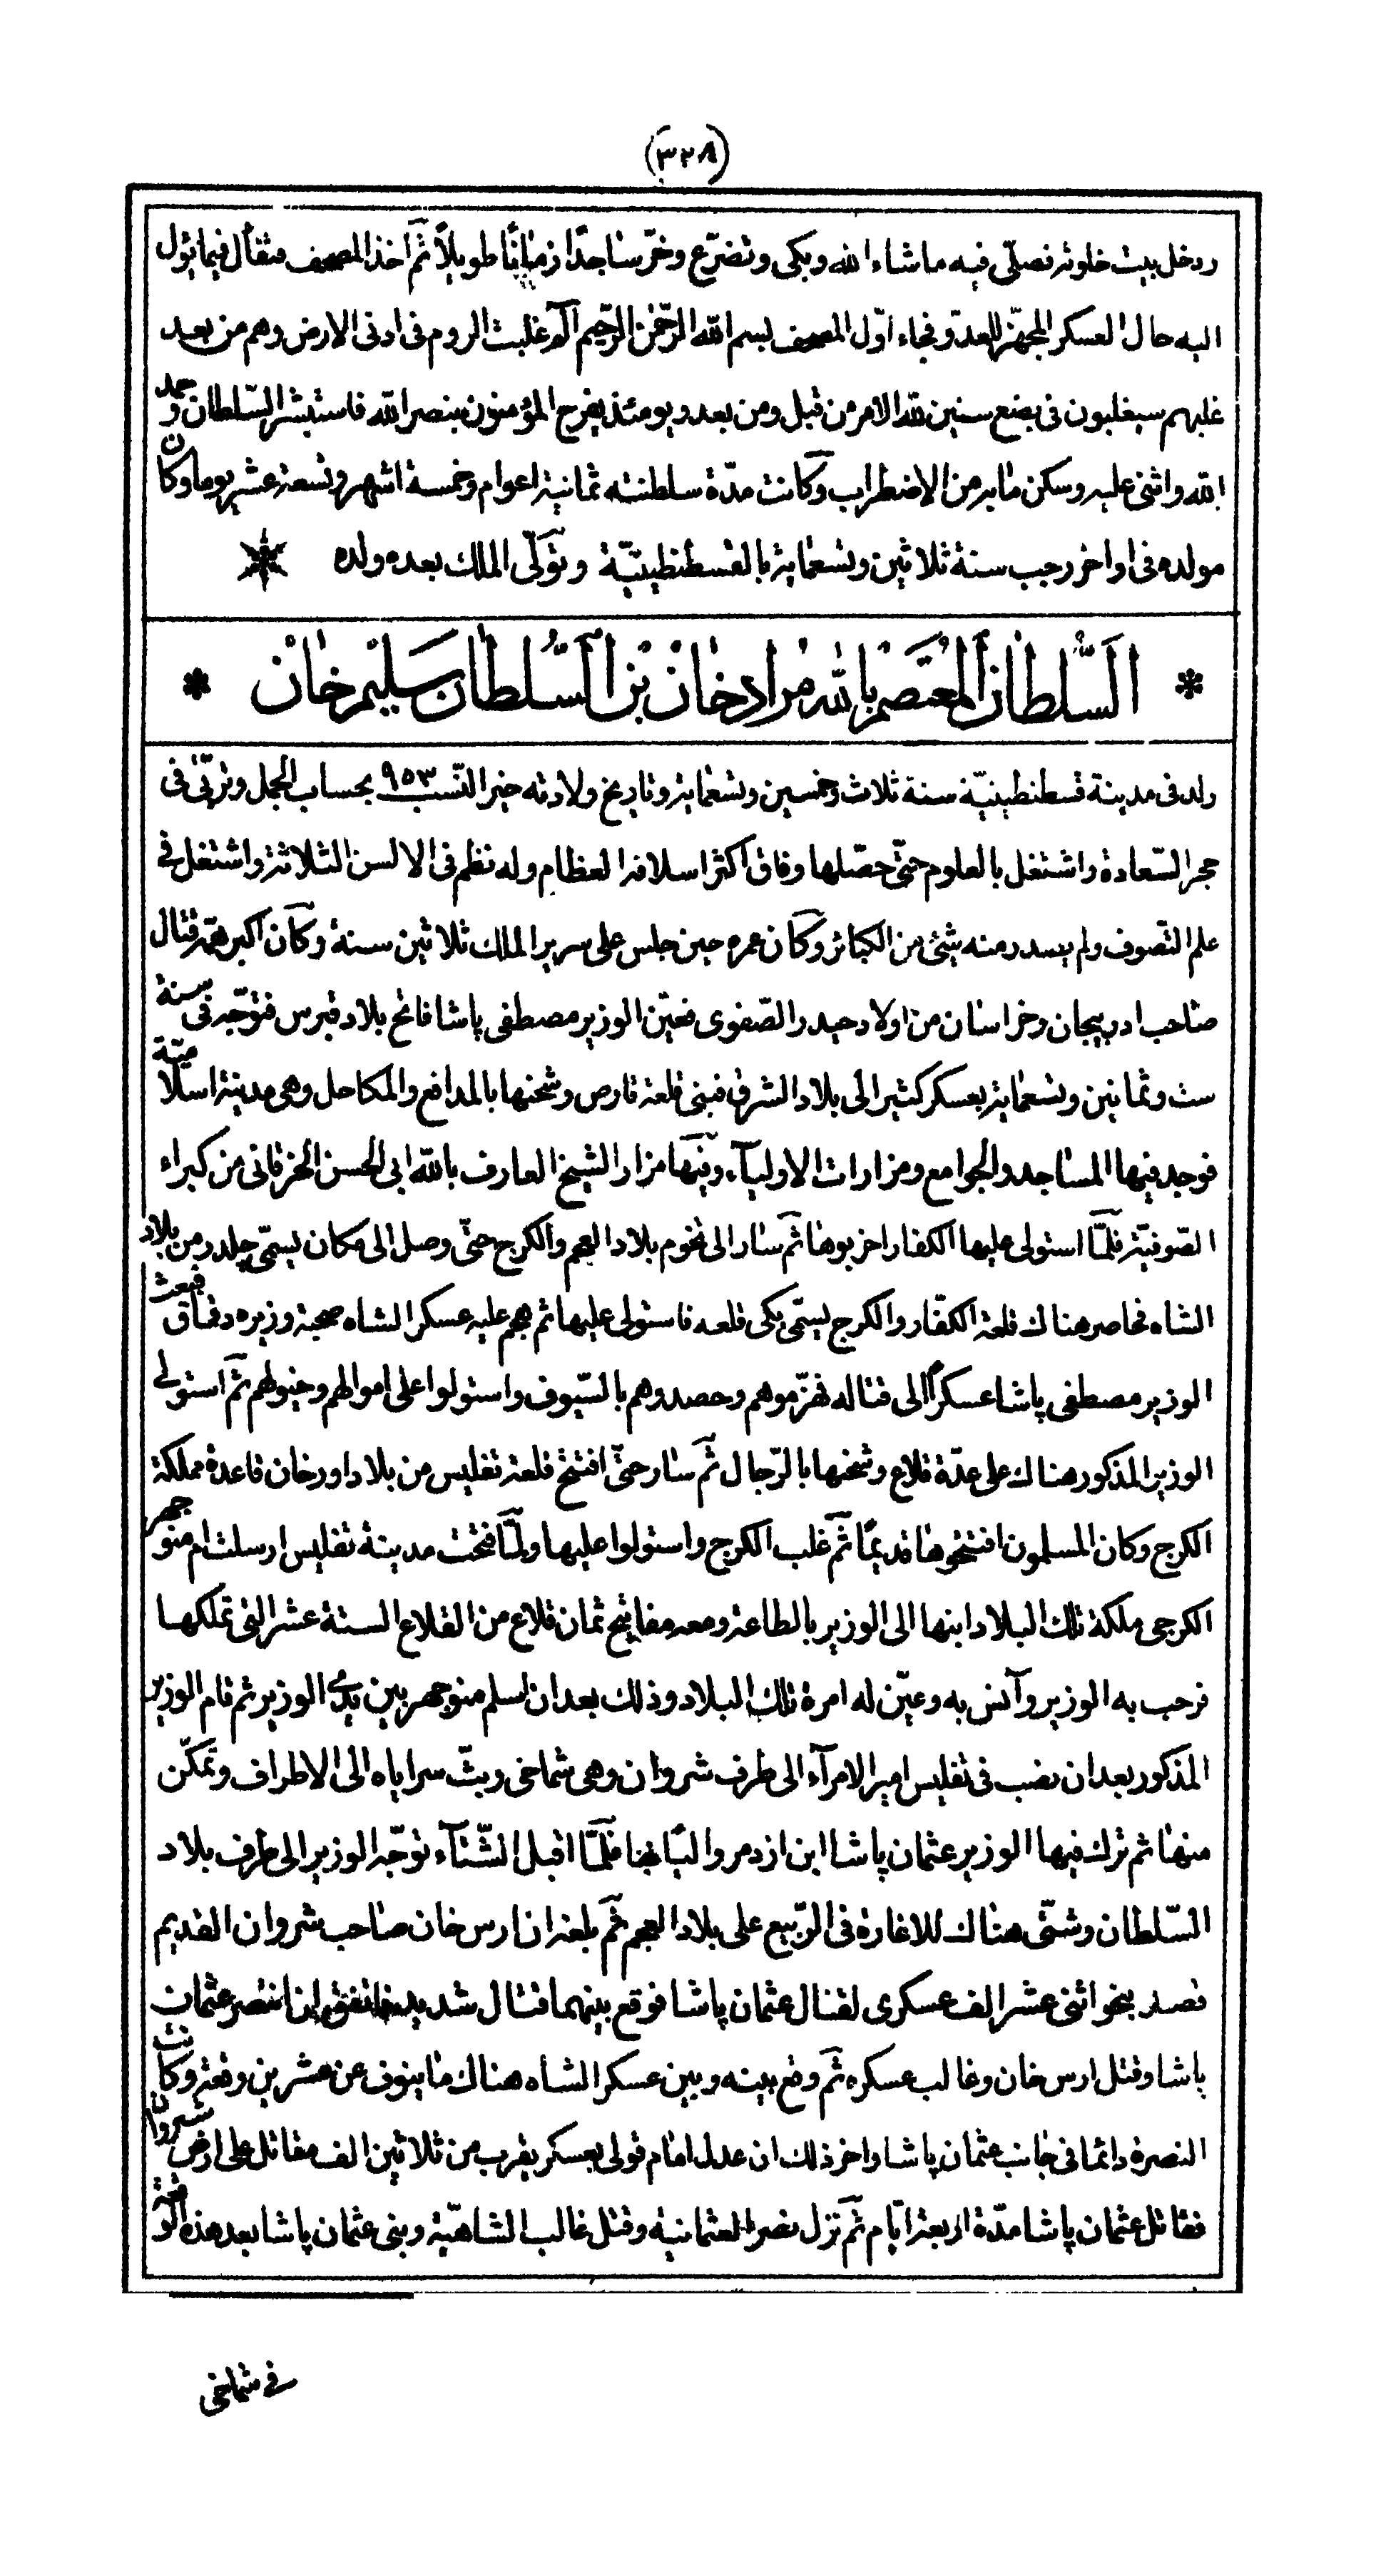 (٣٢٨)
ودخل بيت خلوته فصلّى فيه ماشاء الله وبكى وتضرّع وخرّ ساجدًا زمانًا طويلاً ثمّ اخذ المصحف متفأل فيما يئول
اليه حال العسكر المجهّز للعدوّ فجاء اوّل المصحف بسم الله الرّحمن الرّحيم آلم غلبت الروم فى ادنى الارض وهم من بعد
غلبهم سيغلبون فى بضع سنين لله الامر من قبل ومن بعد ويومئذ يفرح المؤمنون بنصر الله فاستبشر السّلطان وحمد
الله واثنى عليه وسكن ما به من الاضطراب وكانت مدّة سلطنته ثمانية اعوام وخمسة اشهر وتسعة عشر يوما وكان
مولده فى اواخر رجب سنة ثلاثين وتسعمائة بالقسطنطينيّة وتولّى الملك بعده ولده
* السّلطان المعتصم بالله مراد خان بن السّلطان سليم خان *
ولد فى مدينة قسطنطينيّة سنة ثلاث وخمسين وتسعمائة وتاريخ ولادته خير النّسب ٩٥٣ بحساب الجمل وتربّى فى
حجر السّعادة واشتغل بالعلوم حتّى حصّلها وفاق اكثر اسلافه العظام وله نظم فى الالسن الثلاثة واشتغل فى
علم التّصوف ولم يصدر منه شيئ من الكبائر وكان عمره حين جلس على سرير الملك ثلاثين سنة وكان اكبر همّه قتال
صاحب ادربيجان وخراسان من اولاد حيدر الصّفوى فعيّن الوزير مصطفى پاشا فاتح بلاد قبرس فتوجّه فى سنة
ست وثمانين وتسعمائة بعسكر كثير الى بلاد الشرق فبنى قلعة قارص وشحنها بالمدافع والمكاحل وهى مدينة اسلاميّة
فوجد فيها المساجد والجوامع ومزارات الاولياء وفيها مزار الشيخ العارف بالله ابى الحسن الخرقانى من كبراء
الصّوفيّة فلمّا استولى عليها الكفار اخربوها ثمّ سار الى تخوم بلاد العجم والكرج حتّى وصل الى مكان يسمّى جلدر من بلاد
الشاه فحاصر هناك قلعة الكفّار والكرج يسمّى يكى قلعه فاستولى عليها ثم هجم عليه عسكر الشاه صحبة وزيره دقماق فبعث
الوزير مصطفى پاشا عسكرًا الى قتاله فهزّموهم وحصدوهم بالسّيوف واستولوا على اموالهم وخيولهم ثمّ استولى
الوزير المذكور هناك على عدّة قلاع وشحنها بالرّجال ثمّ سار حتّى افتتح قلعة تفليس من بلاد اورخان قاعدة مملكة
الكرج وكان المسلمون افتتحوها قديمًا ثمّ غلب الكرج واستولوا عليها ولمّا فتحت مدينة تفليس ارسلت ام منوجهر
الكرجى ملكة تلك البلاد ابنها الى الوزير بالطاعة ومعه مفاتيح ثمان قلاع من القلاع الستة عشر التى تملكها
فرحب به الوزير وآنس به وعيّن له امرة تلك البلاد وذلك بعد ان اسلم منوجهر بين يدى الوزير ثم قام الوزير
المذكور بعد ان نصب فى تفليس امير الامرآء الى طرف شروان وهى شماخى وبثّ سراياه الى الاطراف وتمكّن
منها ثم ترك فيها الوزير عثمان پاشا ابن ازدمر واليًا بها فلمّا اقبل الشّتآء توجّه الوزير الى طرف بلاد
السّلطان وشتّى هناك للاغارة فى الرّبيع على بلاد العجم ثمّ بلغه ان ارس خان صاحب شروان القديم
قصد بنحو اثنى عشر الف عسكرى لقتال عثمان پاشا فوقع بينهما قتال شديد فاتفق ان انتصر عثمان
پاشا وقتل ارس خان وغالب عسكره ثمّ وقع بينه وبين عسكر الشاه هناك ما ينوف عن عشرين وقعة وكانت
النصرة دائما فى جانب عثمان پاشا واخر ذلك ان عدل امام قولى بعسكر يقرب من ثلاثين الف مقاتل على ارض شروان
فقاتل عثمان پاشا مدّة اربعة ايّام ثمّ نزل نصر العثمانية وقتل غالب الشاهيّة وبنى عثمان پاشا بعد هذه الوقعة
فى شماخى